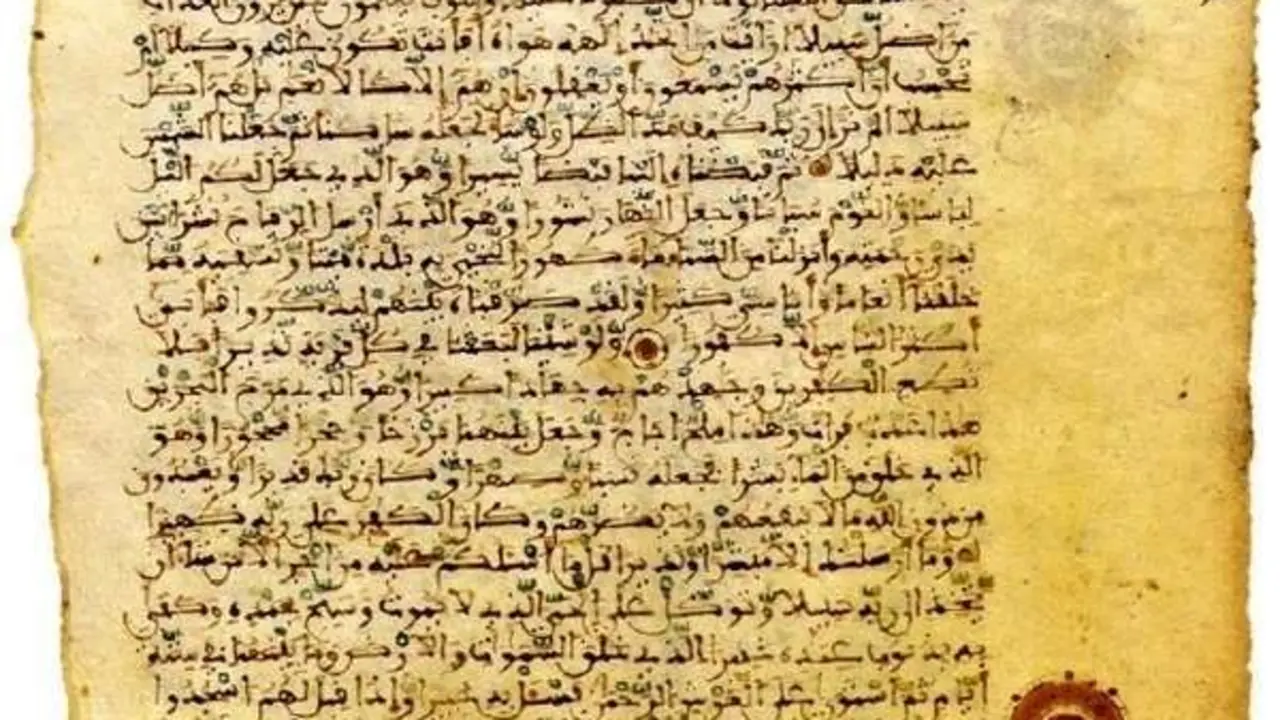 من اضل سبيلا ارايت من اتخذ الهه هواه افانت تكون عليه وكيلا ام
تحسب ان اكثرهم يسمعون او يعقلون ان هم الا كالانعم بل هم اضل
سبيلا الم تر الى ربك كيف مد الظل ولو شا لجعله ساكنا ثم جعلنا الشمس
عليه دليلا ثم قبضناه الينا قبضا يسيرا وهو الذي جعل لكم اليل
لباسا والنوم سباتا وجعل النهار نشورا وهو الذي ارسل الرياح نشرا بين
يدي رحمته وانزلنا من السماء ماء طهورا لنحيي به بلدة ميتا ونسقيه مما
خلقنا انعاما واناسي كثيرا ولقد صرفناه بينهم ليذكروا فابى
اكثر الناس الا كفورا ولو شئنا لبعثنا في كل قرية نذيرا فلا
تطع الكفرين وجهدهم به جهادا كبيرا وهو الذي مرج البحرين
هذا عذب فرات وهذا ملح اجاج وجعل بينهما برزخا وحجرا محجورا وهو
الذي خلق من الماء بشرا فجعله نسبا وصهرا وكان ربك قديرا ويعبدون
من دون الله ما لا ينفعهم ولا يضرهم وكان الكفر على ربه ظهيرا
وما ارسلنك الا مبشرا ونذيرا قل ما اسئلكم عليه من اجر الا من شا ان
يتخذ الى ربه سبيلا وتوكل على الحي الذي لا يموت وسبح بحمده وكفى
به بذنوب عباده خبيرا الذي خلق السموات والارض وما بينهما في ستة
ايام ثم استوى على العرش الرحمن فسئل به خبيرا واذا قيل لهم اسجدوا